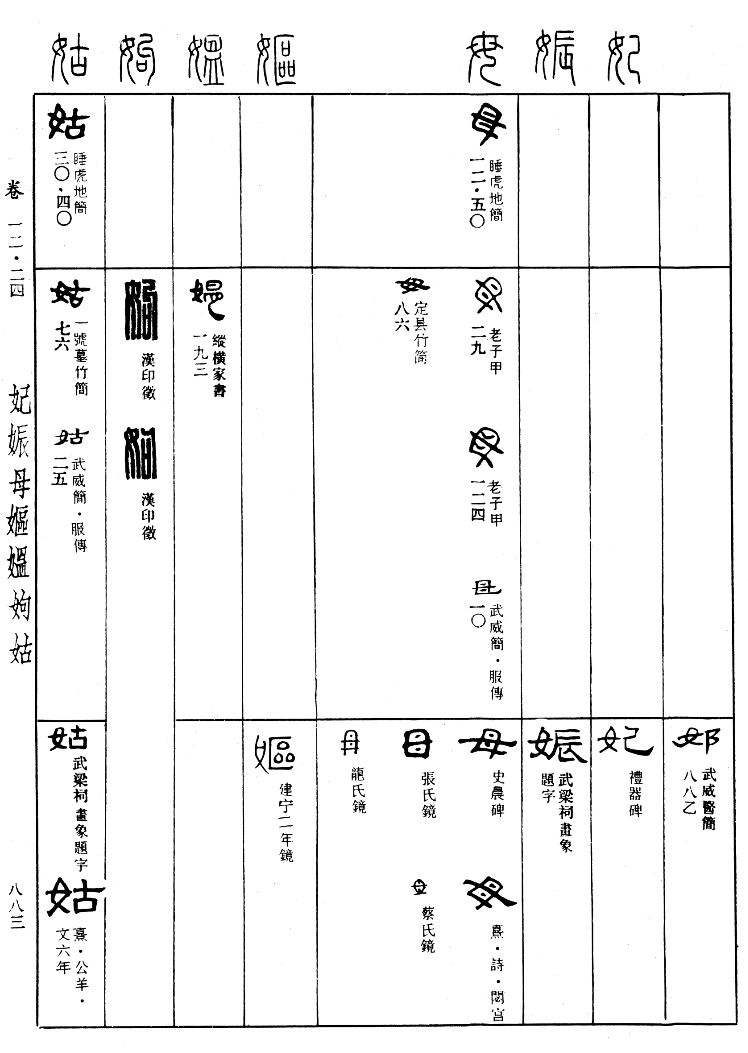 妃
娠
母
嫗
媼
姁
姑
武威醫簡
八八乙
妃
禮器碑
娠
武梁祠畫象
題字
母
睡虎地簡
一一·五〇
母
老子甲
二九
母
老子甲
一二四
母
武威簡·服傳
一〇
母
史農碑
母
熹·詩·閟宮
母
定县竹简
八六
母
張氏鏡
母
蔡氏鏡
母
龍氏鏡
嫗
建宁二年鏡
媼
縱橫家書
一九三
姁
漢印徵
姁
漢印徵
姑
睡虎地簡
三〇·四〇
姑
一號墓竹簡
七六
姑
武威簡·服傳
二五
姑
武梁祠畫象題字
姑
熹·公羊·
文六年
卷 一二·二四
妃娠母嫗媼姁姑
八八三